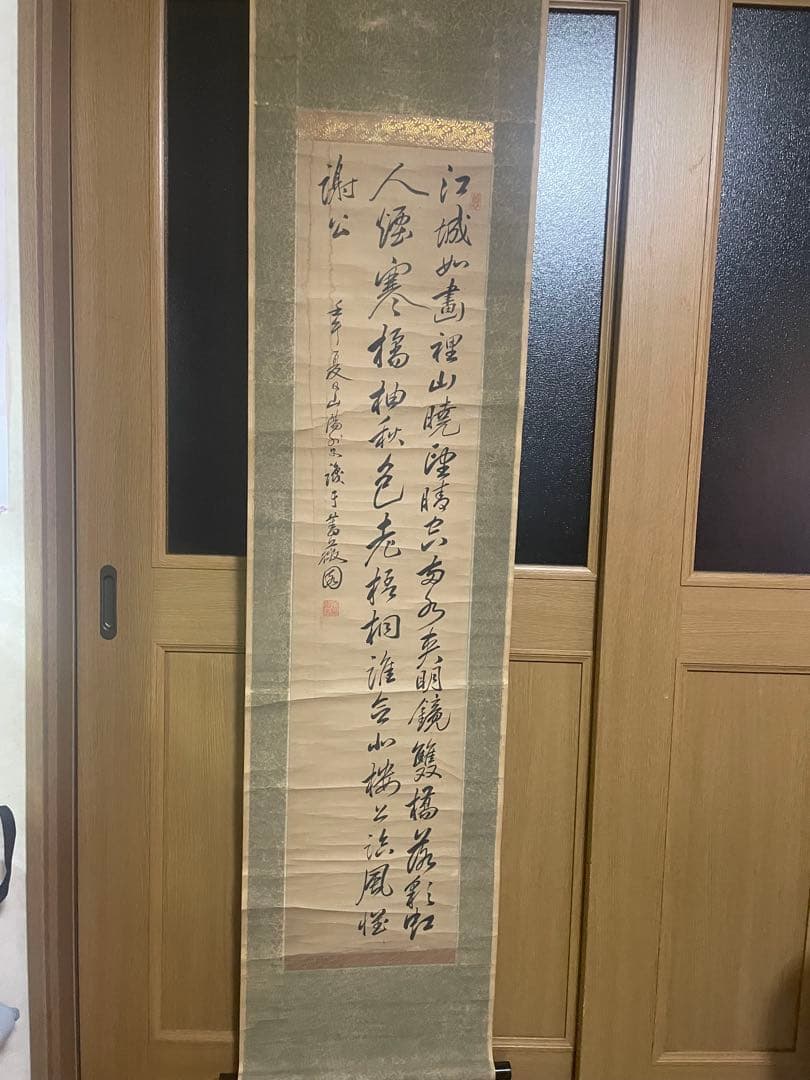 江城如畫裡山曉望晴空兩水夾明鏡雙橋落彩虹
人煙寒橘柚秋色老梧桐誰念北樓上臨風懷
謝公
壬午夏日山 于薔薇園